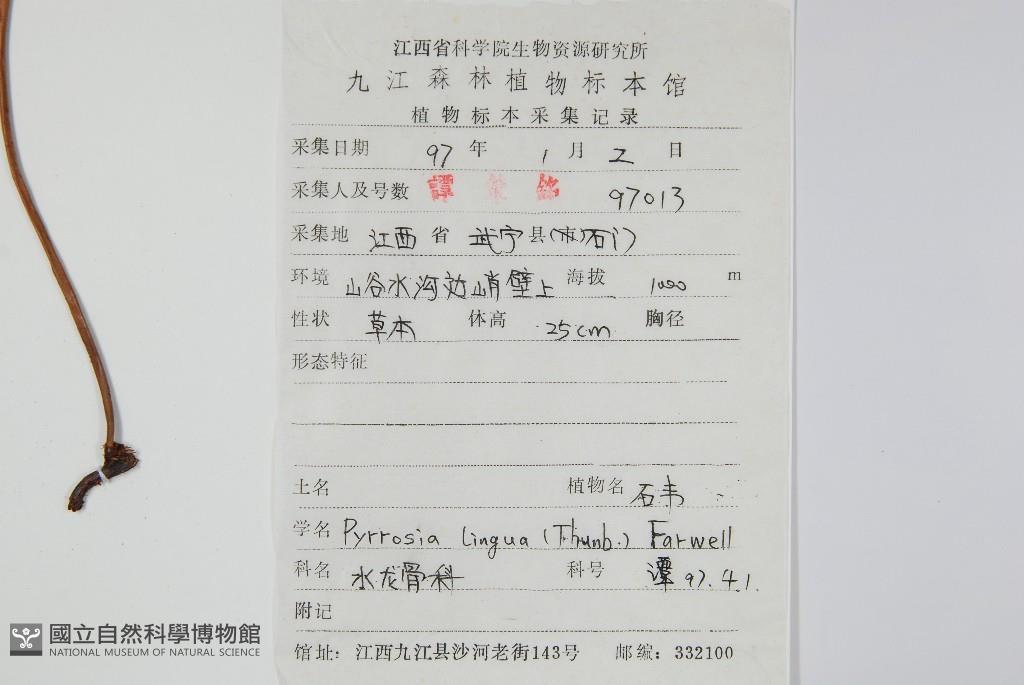 江西省科学院生物资源研究所
九江森林植物标本馆
植物标本采集记录
采集日期 97 年 1 月 2 日
采集人及号数 譚 策 銘 97013
采集地 江西 省 武宁 县(市)石门
环境 山谷水沟边峭壁上 海拔 1000 m
性状 草本 体高 25cm 胸径
形态特征
土名 植物名 石韦
学名 Pyrrosia lingua (Thunb.) Farwell
科名 水龙骨科 科号 潭 97.4.1.
附记
馆址：江西九江县沙河老街143号 邮编：332100
國立自然科學博物館
NATIONAL MUSEUM OF NATURAL SCIENCE